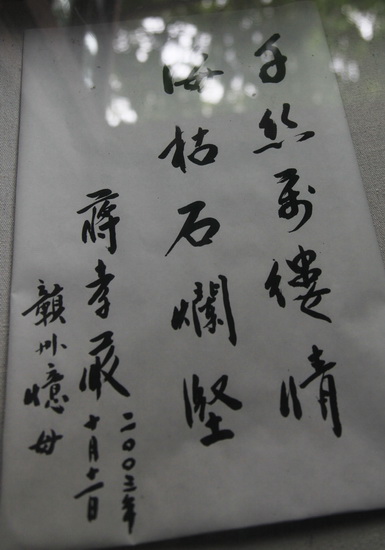 千絲萬縷情
海枯石爛堅
蔣孝嚴
二〇〇三年
十月十一日
贛州憶母